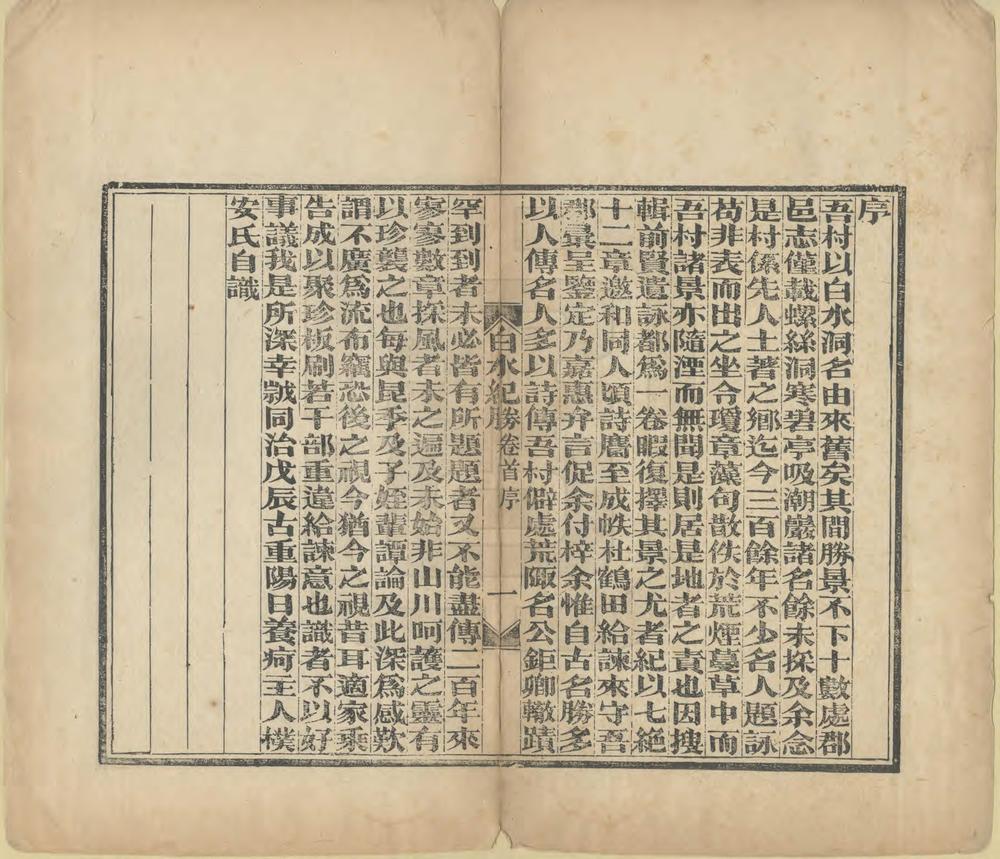 序
吾村以白水洞名由來舊矣其間勝景不下十數處郡
邑志僅載螺絲洞寒碧亭吸潮巖諸名餘未採及余念
是村係先人土著之鄉迄今三百餘年不少名人題詠
苟非表而出之坐令瓊章藻句散佚於荒煙蔓草中而
吾村諸景亦隨湮而無聞是則居是地者之責也因搜
輯前賢遺詠都爲一卷暇復擇其景之尤者紀以七絶
十二章邀和同人頃詩廥至成帙杜鶴田給諫來守吾
郡最呈鑒定乃嘉惠弁言促余付梓余惟自古名勝多
以人傳名人多以詩傳吾村僻處荒陬名公鉅卿轍蹟
白水紀勝 卷首序 一
罕到到者未必皆有所題題者又不能盡傳二百年來
寥寥數章採風者未之遍及未始非山川呵護之靈有
以珍襲之也每與昆季及子姪輩譚論及此深爲感歎
謂不廣爲流布竊恐後之視今猶今之視昔耳適家乘
告成以聚珍板刷若干部重違給諫意也識者不以好
事議我是所深幸歟同治戊辰古重陽日養疴主人樸
安氏自識